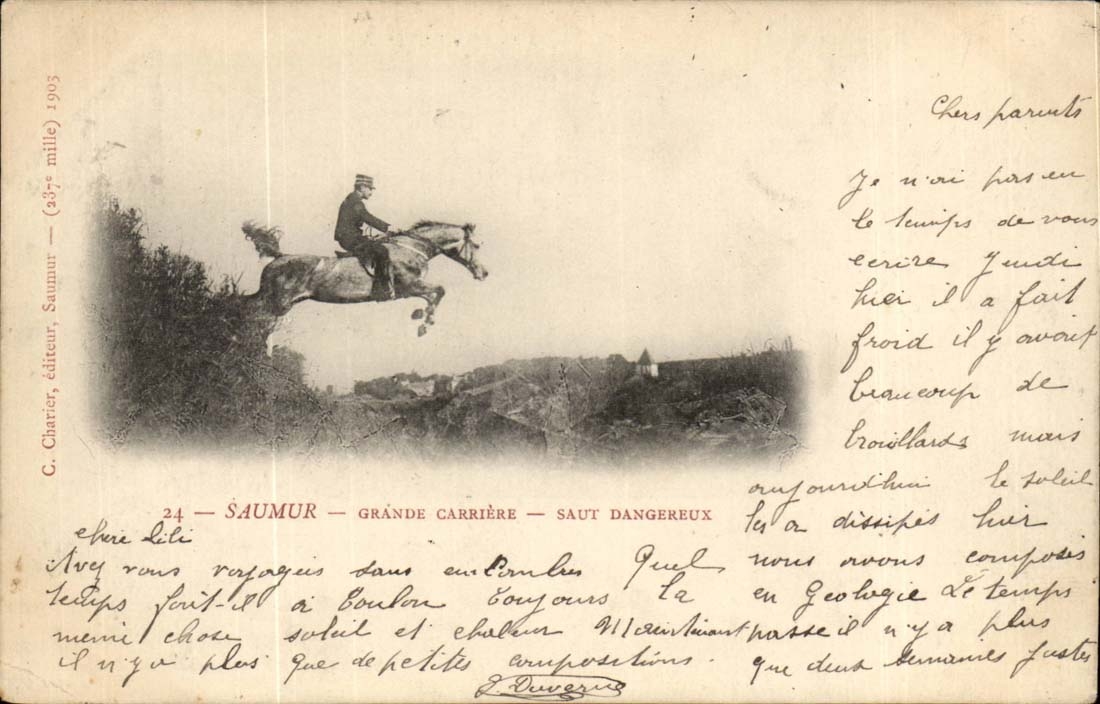 C. Charier, éditeur, Saumur — (237e mille) 1903
Chers parents
Je n'ai pas eu
le temps de vous
ecrire Jeudi
hier il a fait
froid il y avait
beaucoup de
brouillards mais
aujourd'hui le soleil
les a dissipés hier
nous avons composés
en Geologie Le temps
passe il n'y a plus
que deux semaines justes
24 — SAUMUR — GRANDE CARRIÈRE — SAUT DANGEREUX
chere Lili
Avez vous voyagés sans encombres Quel
temps fait-il a Toulon Toujours la
meme chose soleil et chaleur Maintenant
il n'y a plus que de petites compositions.
J. Duvergne